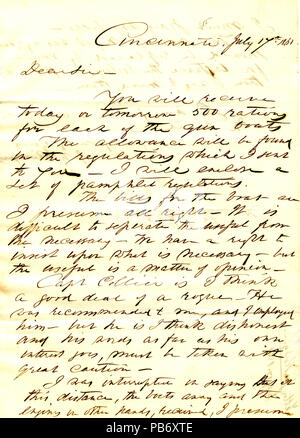 Cincinnati, July 17th 1861
Dear Sir -
You will receive
today or tomorrow 500 rations
for each of the gun boats
The allowance will be found
in the regulations which I sent
to you - I will enclose a
set of pamphlet regulations.
The bids for the boat are
I presume all right - It is
difficult to seperate the useful from
the necessary - We have a right to
insist upon what is necessary - but
the useful is a matter of opinion -
Capt is I think
a good deal of a rogue - He
was recommended to me, and I employed
him - but he is I think dishonest
and his ands as far as his own
interest goes, must be taken with
great caution -
I was interupted in saying that in
this, distance, the boats away and the
engines in other hands, received, I presume